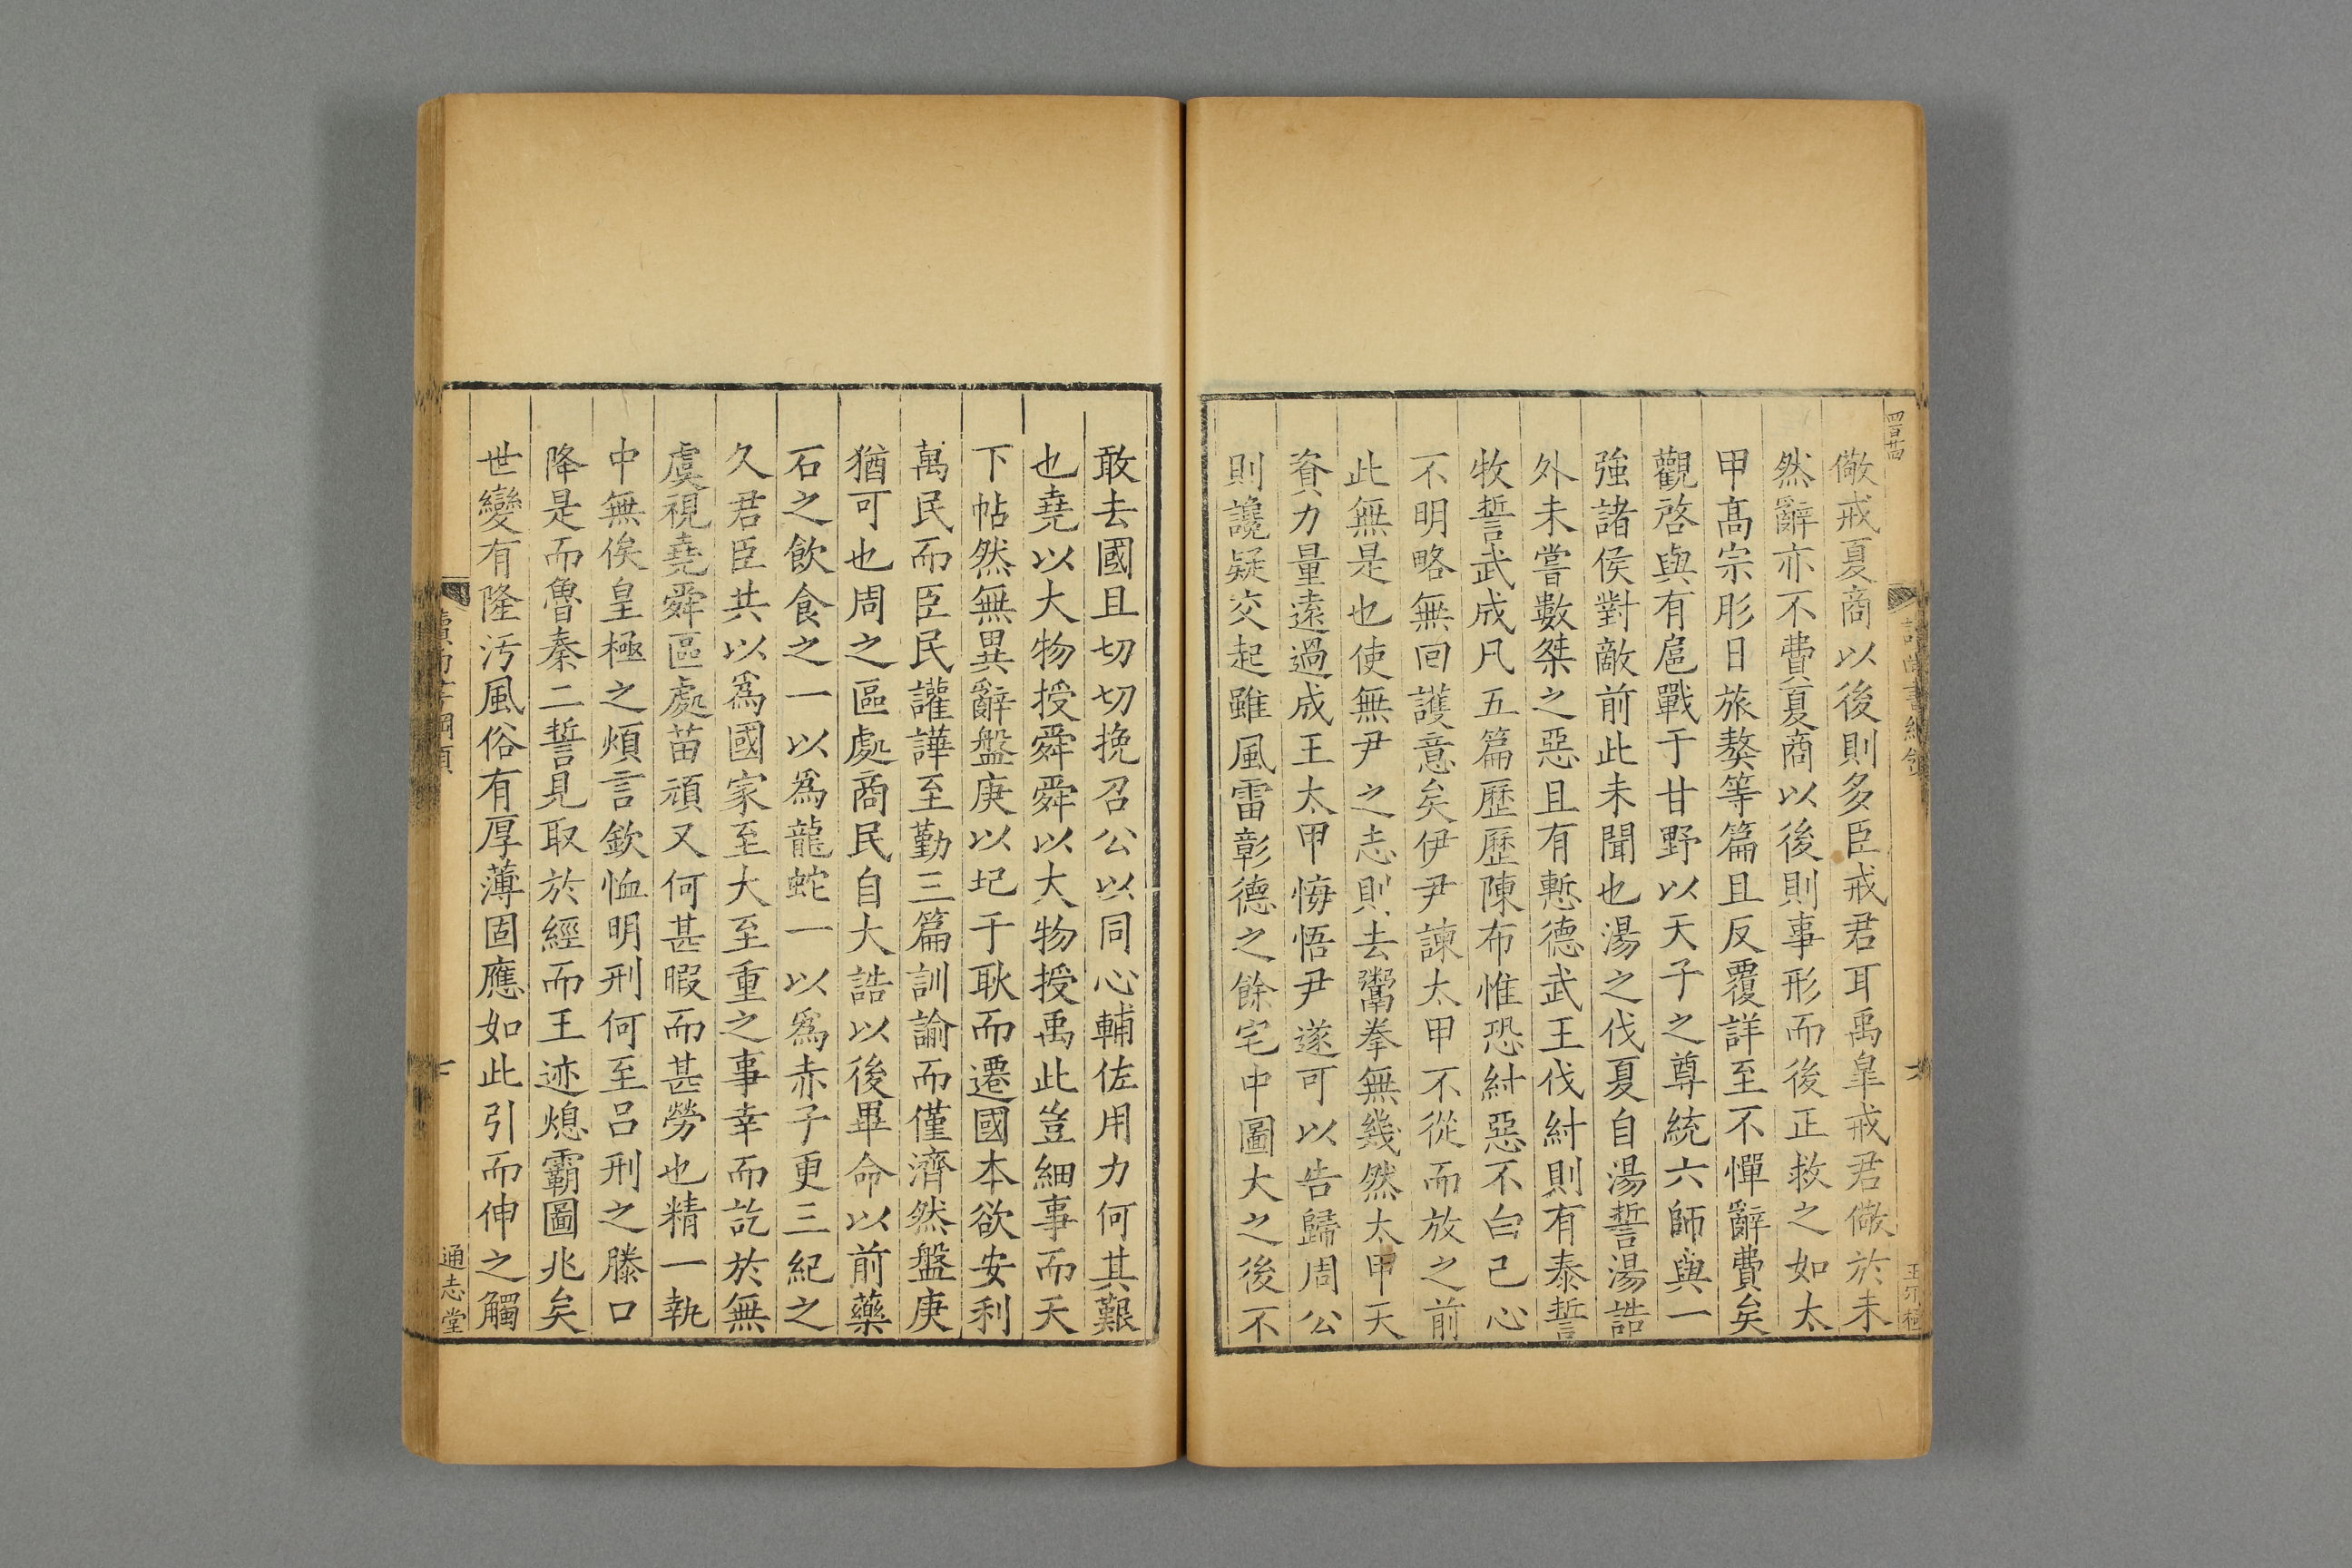 儆戒夏商以後則多臣戒君耳禹臯戒君儆於未
然辭亦不費夏商以後則事形而後正救之如太
甲高宗肜日旅獒等篇且反覆詳至不憚辭費矣
觀啓與有扈戰于甘野以天子之尊統六師與一
強諸侯對敵前此未聞也湯之伐夏自湯誓湯誥
外未嘗數桀之惡且有慙德武王伐紂則有泰誓
牧誓武成凡五篇歷歷陳布惟恐紂惡不白己心
不明略無回護意矣伊尹諫太甲不從而放之前
此無是也使無尹之志則去鬻拳無幾然太甲天
資力量遠過成王太甲悔悟尹遂可以告歸周公
則讒疑交起雖風雷彰德之餘宅中圖大之後不
敢去國且切切挽召公以同心輔佐用力何其艱
也堯以大物授舜舜以大物授禹此豈細事而天
下帖然無異辭盤庚以圮于耿而遷國本欲安利
萬民而臣民讙譁至勤三篇訓諭而僅濟然盤庚
猶可也周之區處商民自大誥以後畢命以前藥
石之飲食之一以爲龍蛇一以爲赤子更三紀之
久君臣共以爲國家至大至重之事幸而訖於無
虞視堯舜區處苗頑又何甚暇而甚勞也精一執
中無俟皇極之煩言欽恤明刑何至呂刑之滕口
降是而魯秦二誓見取於經而王迹熄霸圖兆矣
世變有隆汚風俗有厚薄固應如此引而伸之觸
通志堂